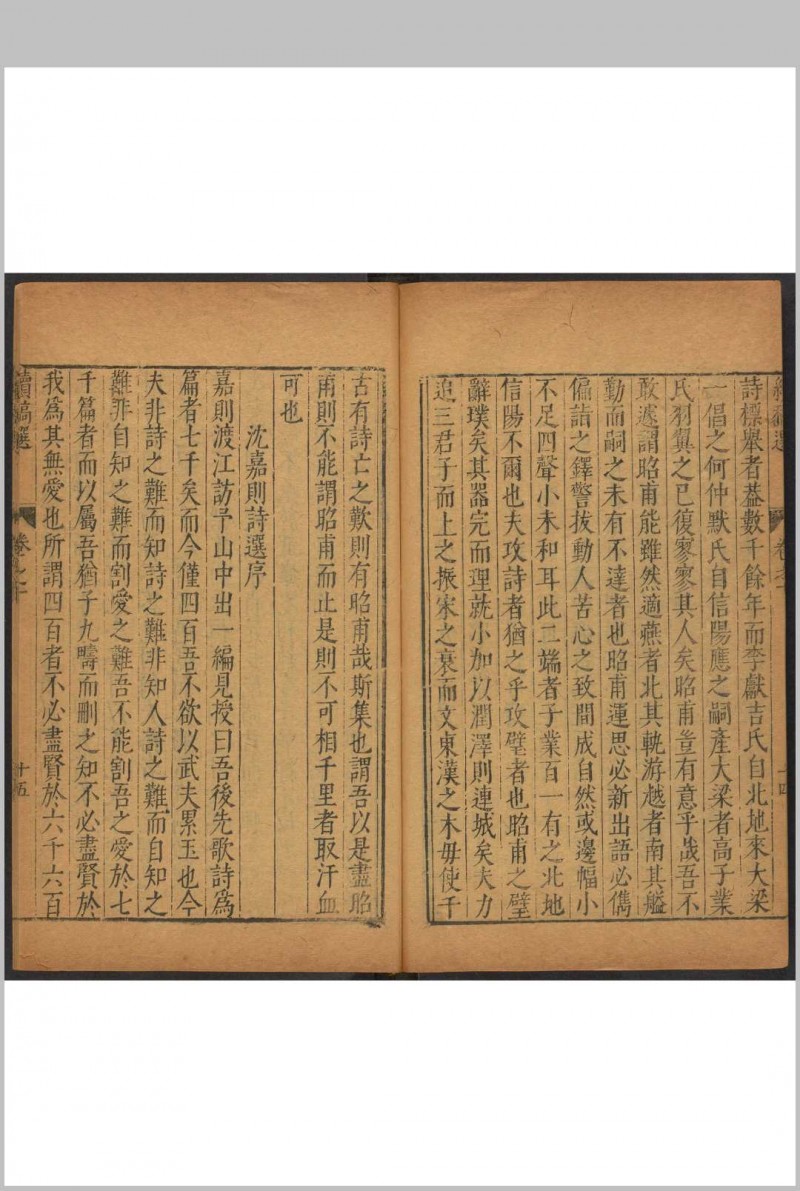 詩標舉者葢數千餘年而李獻吉氏自北地來大梁
一倡之何仲默氏自信陽應之嗣產大梁者高子業
氏羽翼之已復寥寥其人矣昭甫豈有意乎哉吾不
敢遽謂昭甫能雖然適燕者北其軌游越者南其艗
勤而嗣之未有不達者也昭甫運思必新出語必儁
偏詰之鐸警拔動人苦心之致間成自然或邊幅小
不足四聲小未和耳此二端者子業百一有之北地
信陽不爾也夫攻詩者猶之乎攻璧者也昭甫之璧
辭璞矣其器完而理就小加以潤澤則連城矣夫力
追三君子而上之振宋之衰而文東漢之木毋使千
古有詩亡之歎則有昭甫哉斯集也謂吾以是盡昭
甫則不能謂昭甫而止是則不可相千里者取汗血
可也
沈嘉則詩選序
嘉則渡江訪予山中出一編見授曰吾後先歌詩爲
篇者七千矣而今僅四百吾不欲以武夫累玉也今
夫非詩之難而知詩之難非知人詩之難而自知之
難非自知之難而割愛之難吾不能割吾之愛於七
千篇者而以屬吾猶子九疇而刪之知不必盡賢於
我爲其無愛也所謂四百者不必盡賢於六千六百
續稿選
卷之十
十五